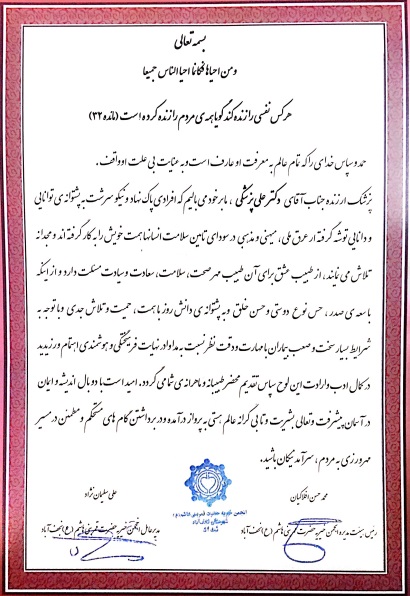 بسمه تعالی
و من احیاها فکانما احیا الناس جمیعا
هرکس نفسی را زنده کند گویا همه ی مردم را زنده کرده است (مائده ۳۲)
حمد و سپاس خدای را که تمام عالم به معرفت او عارف است و به عنایت بی علت او واقف.
پزشک ارزنده جناب آقای دکتر علی پزشکی ، ما بر خود می بالیم که افرادی پاک نهاد و نیکو سرشت به پشتوانه ی توانایی
و دانایی توشه گرفته از عرق ملی ، میهنی و مذهبی در سودای تامین سلامت انسانها همت خویش را به کار گرفته اند و مجدانه
تلاش می نمایند ، از طبیب عشق برای آن طبیب مهر صحت ، سلامت ، سعادت و سیادت مسئلت دارد و از اینکه
با سعه ی صدر ، حس نوع دوستی و حسن خلق و به پشتوانه ی دانش روز با همت ، حمیت و تلاش جدی و با توجه به
شرایط بسیار سخت و صعب بیماران با مهارت و دقت نظر نسبت به مداوا در نهایت فرهیختگی و هوشمندی اهتمام ورزیدید
در کمال ادب و ارادت این لوح سپاس تقدیم محضر طبیبانه و ماهرانه ی شما می گردد. امید است با دو بال اندیشه و ایمان
در آسمان پیشرفت و تعالی بشریت و تا بی کرانه عالم هستی به پرواز درآمده و در برداشتن گام های مستحکم و مطمئن در مسیر
مهرورزی به مردم ، سرآمد نیکان باشید.
محمد حسن افلاکیان
علی سلمان نژاد
انجمن خیریه حضرت قمر بنی هاشم (ع)
شهرستان نجف آباد
رئیس هیئت مدیره انجمن خیریه حضرت قمر بنی هاشم (ع) نجف آباد
مدیرعامل انجمن خیریه حضرت قمر بنی هاشم (ع) نجف آباد